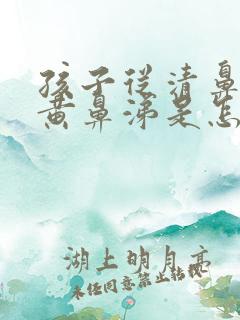 孩子从清鼻
黄鼻涕是怎
湖上明月亮
未经同意禁止转载